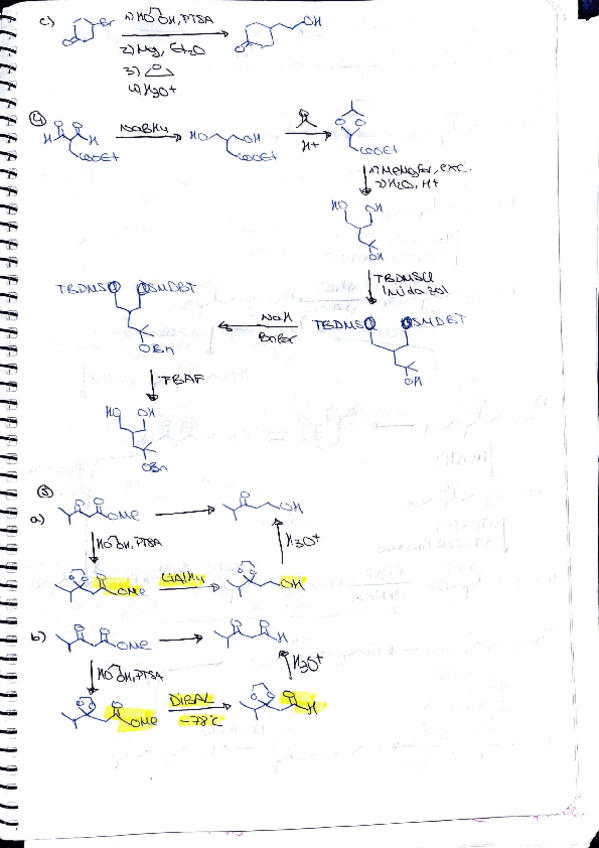 c) Br 1) HO OH, PTSA OH
O 2) Mg, Et2O
3) O
4) H3O+
4
O O
H H NaBH4 HO OH O O O
COOEt COOEt H+ COOEt
1) MeMgBr, exc.
2) H2O, H+
HO OH
OH
TBDMSCl
Imidazol
TBDMSO OSMDBT NaH TBDMSO OSMDBT
OBn BnBr OH
TBAF
HO OH
OBn
3
a) O O OMe O OH
HO OH, PTSA H3O+
O O O OMe LiAlH4 O O OH
b) O O OMe O O H
HO OH, PTSA H3O+
O O O OMe DIBAL O O O H
-78°C